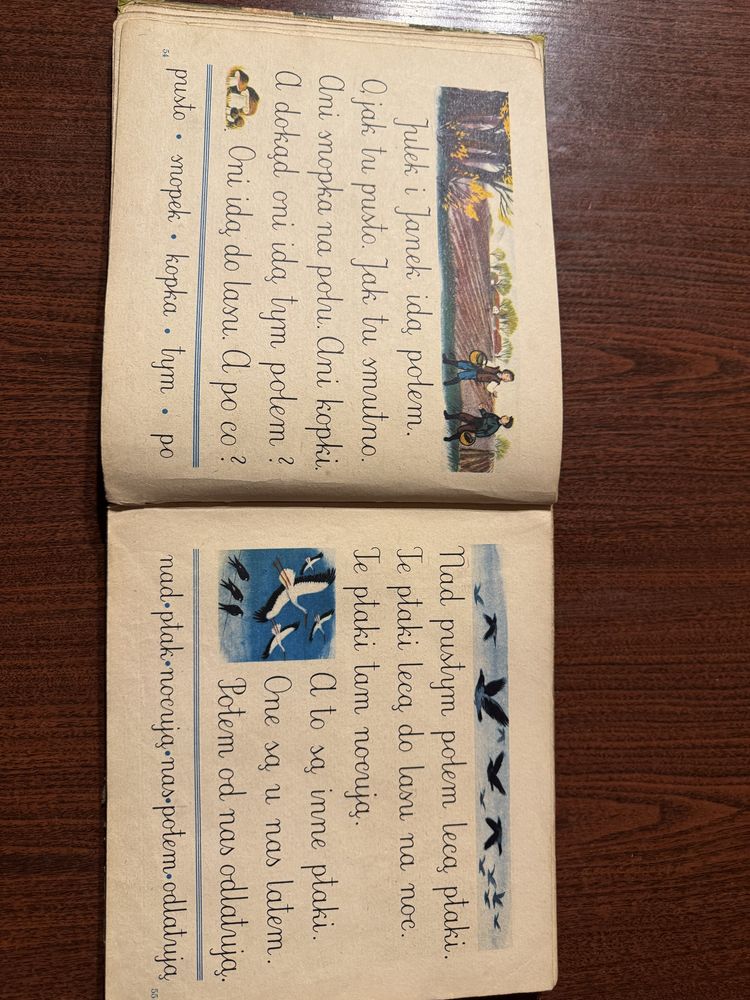 Julek i Janek idą polem.
O, jak tu pusto. Jak tu smutno.
Ani snopka na polu. Ani kopki.
A dokąd oni idą tym polem?
Oni idą do lasu. A po co?
pusto • snopek • kopka • tym • po
54
Nad pustym polem lecą ptaki.
Te ptaki lecą do lasu na noc.
Te ptaki tam nocują.
A to są inne ptaki.
One są u nas latem.
Potem od nas odlatują.
nad•ptak•nocują•nas•potem•odlatują
55